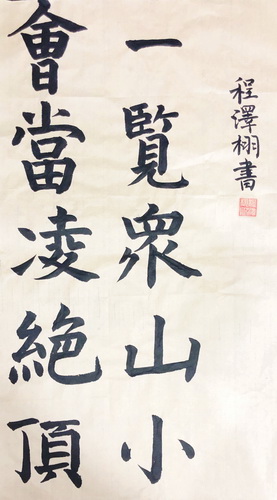 會當凌絕頂
一覽眾山小
程澤栩書